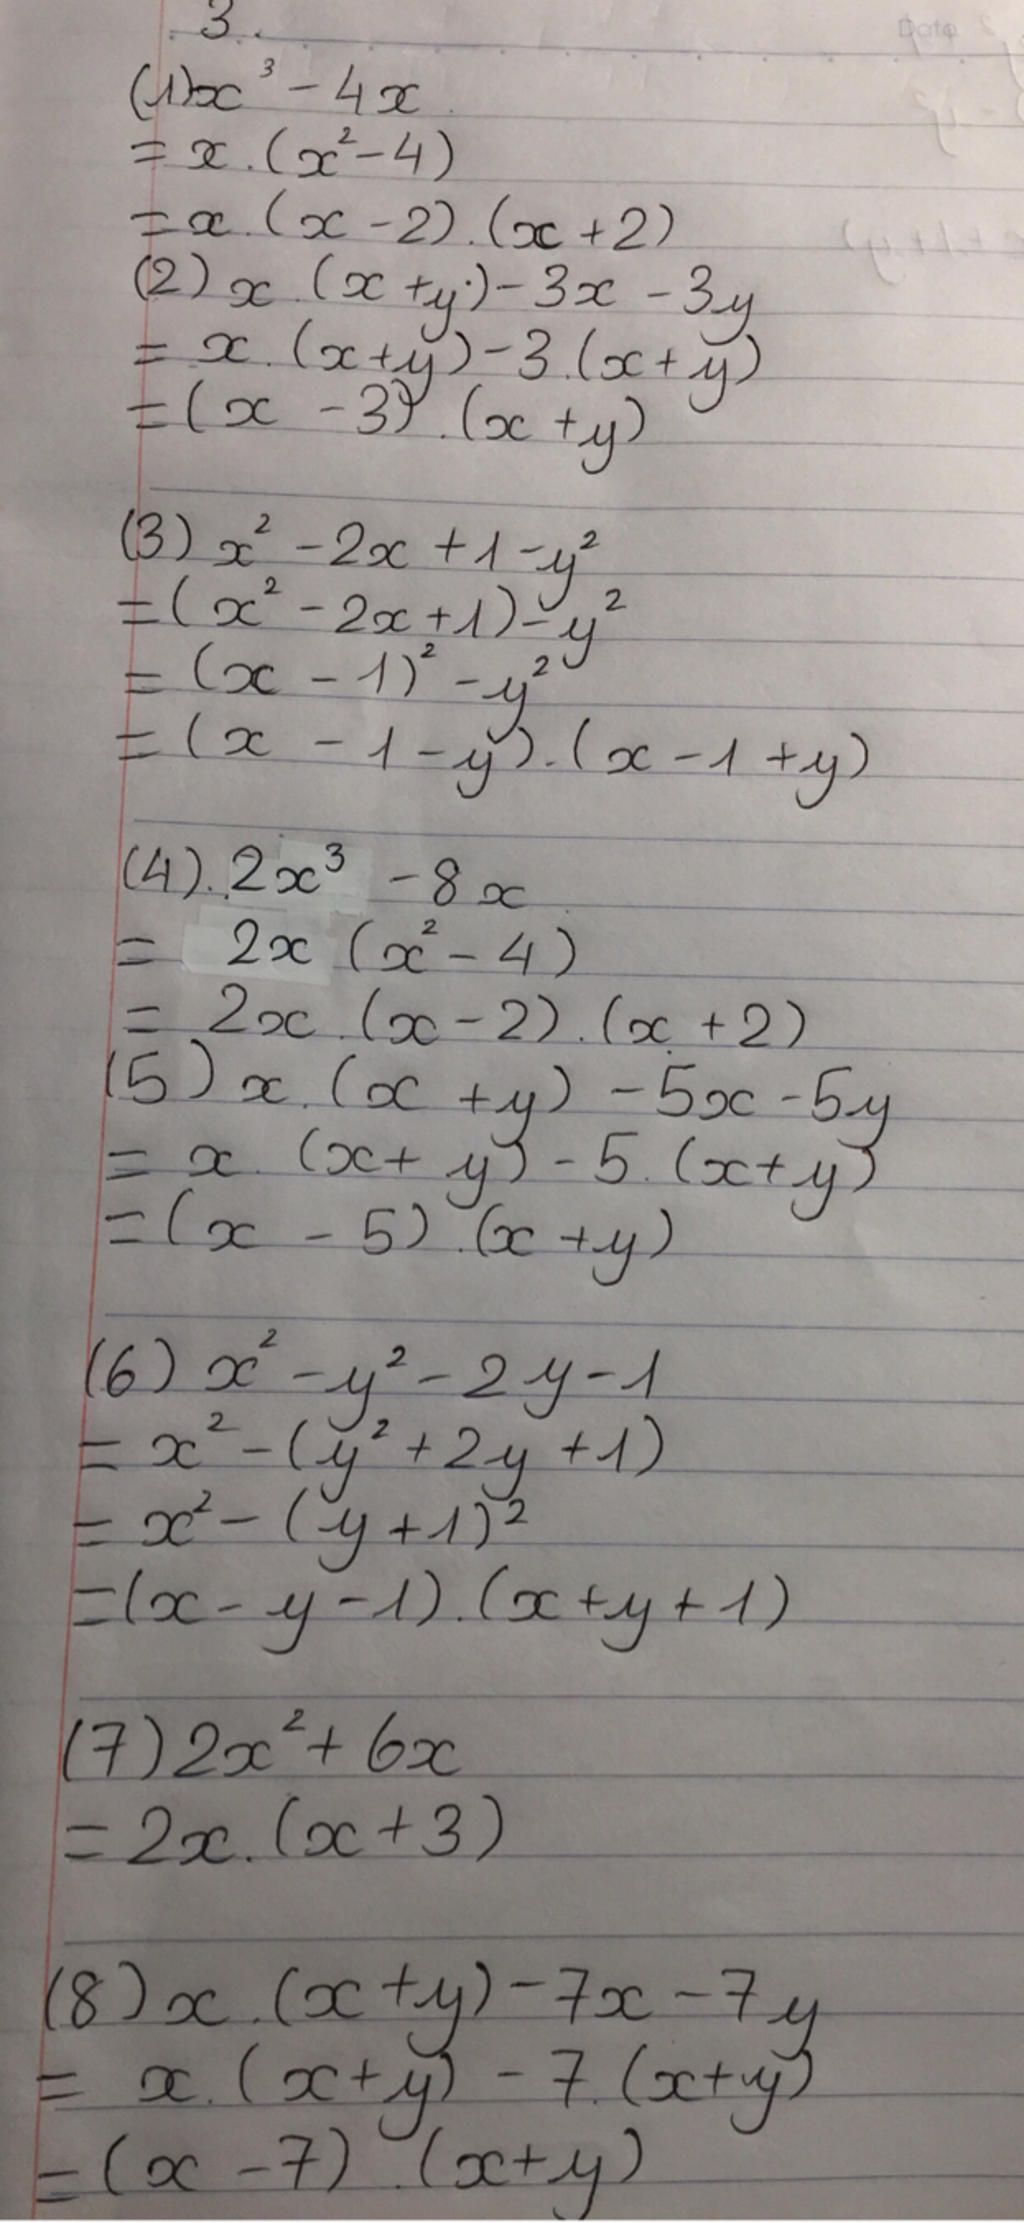 3.
Date
(1) x³ - 4x
= x.(x² - 4)
= x.(x - 2).(x + 2)
(2) x.(x + y) - 3x - 3y
= x.(x + y) - 3.(x + y)
= (x - 3).(x + y)
(3) x² - 2x + 1 - y²
= (x² - 2x + 1) - y²
= (x - 1)² - y²
= (x - 1 - y).(x - 1 + y)
(4). 2x³ - 8x
= 2x (x² - 4)
= 2x.(x - 2).(x + 2)
(5) x.(x + y) - 5x - 5y
= x.(x + y) - 5.(x + y)
= (x - 5).(x + y)
(6) x² - y² - 2y - 1
= x² - (y² + 2y + 1)
= x² - (y + 1)²
= (x - y - 1).(x + y + 1)
(7) 2x² + 6x
= 2x.(x + 3)
(8) x.(x + y) - 7x - 7y
= x.(x + y) - 7.(x + y)
= (x - 7).(x + y)